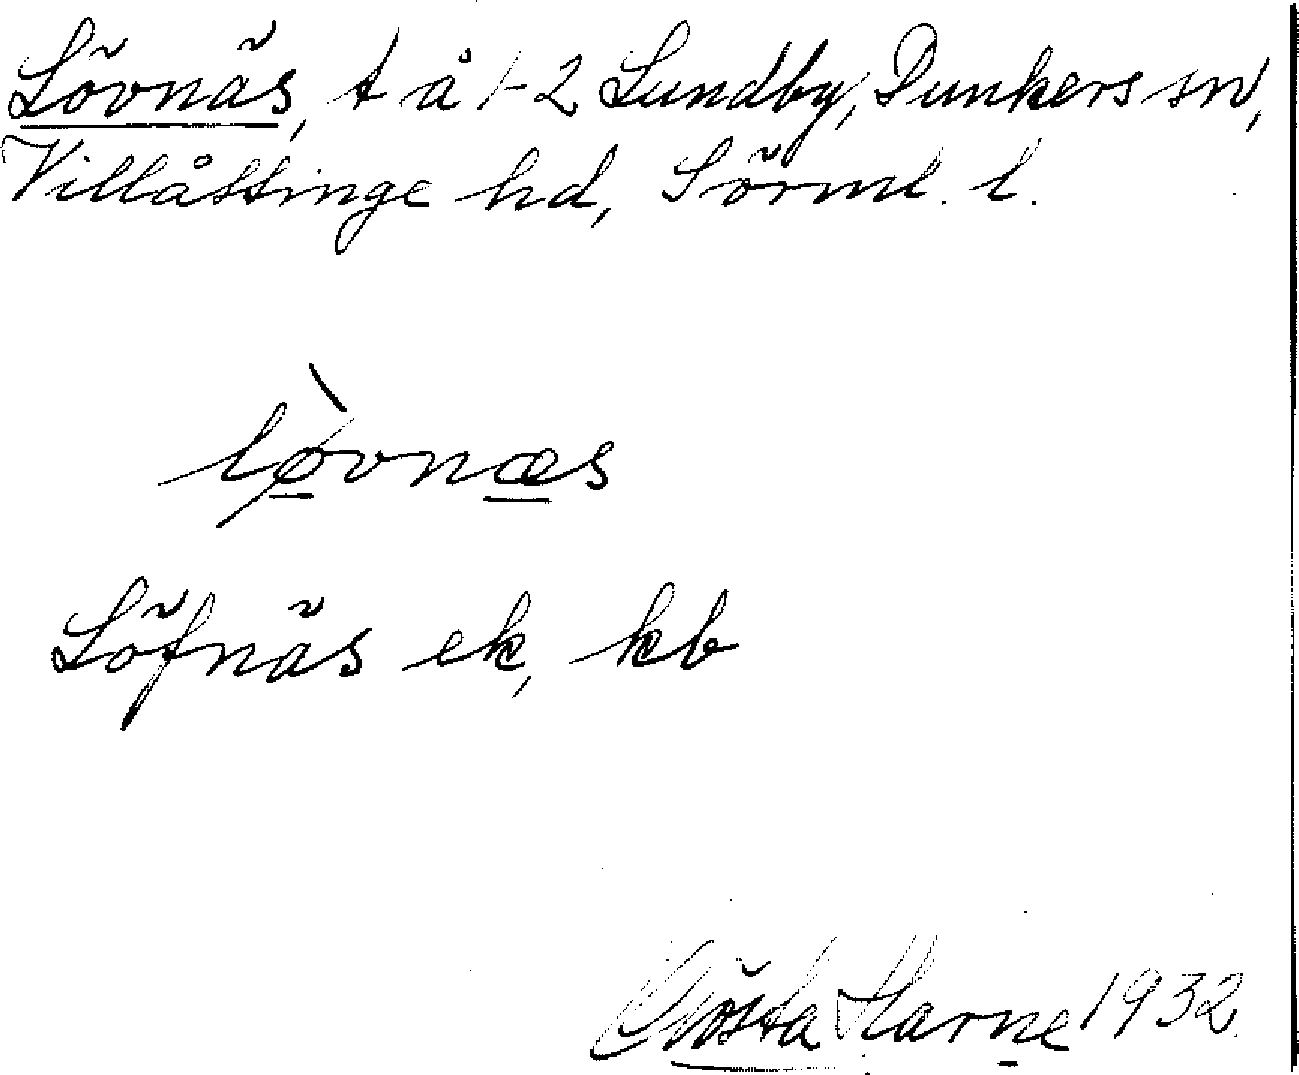 Lövnäs, t å 1-2 Lundby, Dunkers sn,
Villåttinge hd, Sörml. l.
lø̀vnæs
Löfnäs ek, kb
Gösta Harne 1932